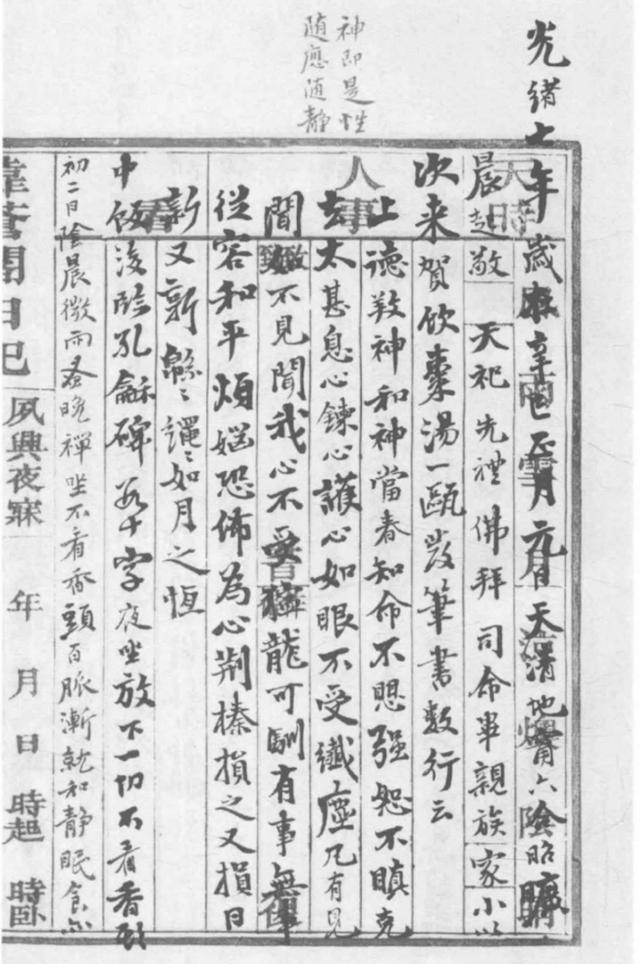 神即是性
随應随静
光緒七年歲在辛巳正月元日天清地甯六陰昭曠
晨起敬天祀先禮佛拜司命畢親族家小以
次来賀飲棗湯一甌發筆書数行云
上德敦神和神當春知命不思強恕不瞋克
去太甚息心鍊心護心如眼不受纖塵凡有見
聞如不見聞我心不受獰龍可馴有事無事
從容和平煩惱恐怖為心荆榛損之又損日
新又新緜緜繩繩如月之恆
中飯後臨孔龢碑若干字夜坐放下一切不看香頭
初二日陰晨微雨蚤晚禪坐不看香頭百脈漸就和静眠食亦
日記
夙興夜寐 年 月 日 時起 時卧
天時
人事